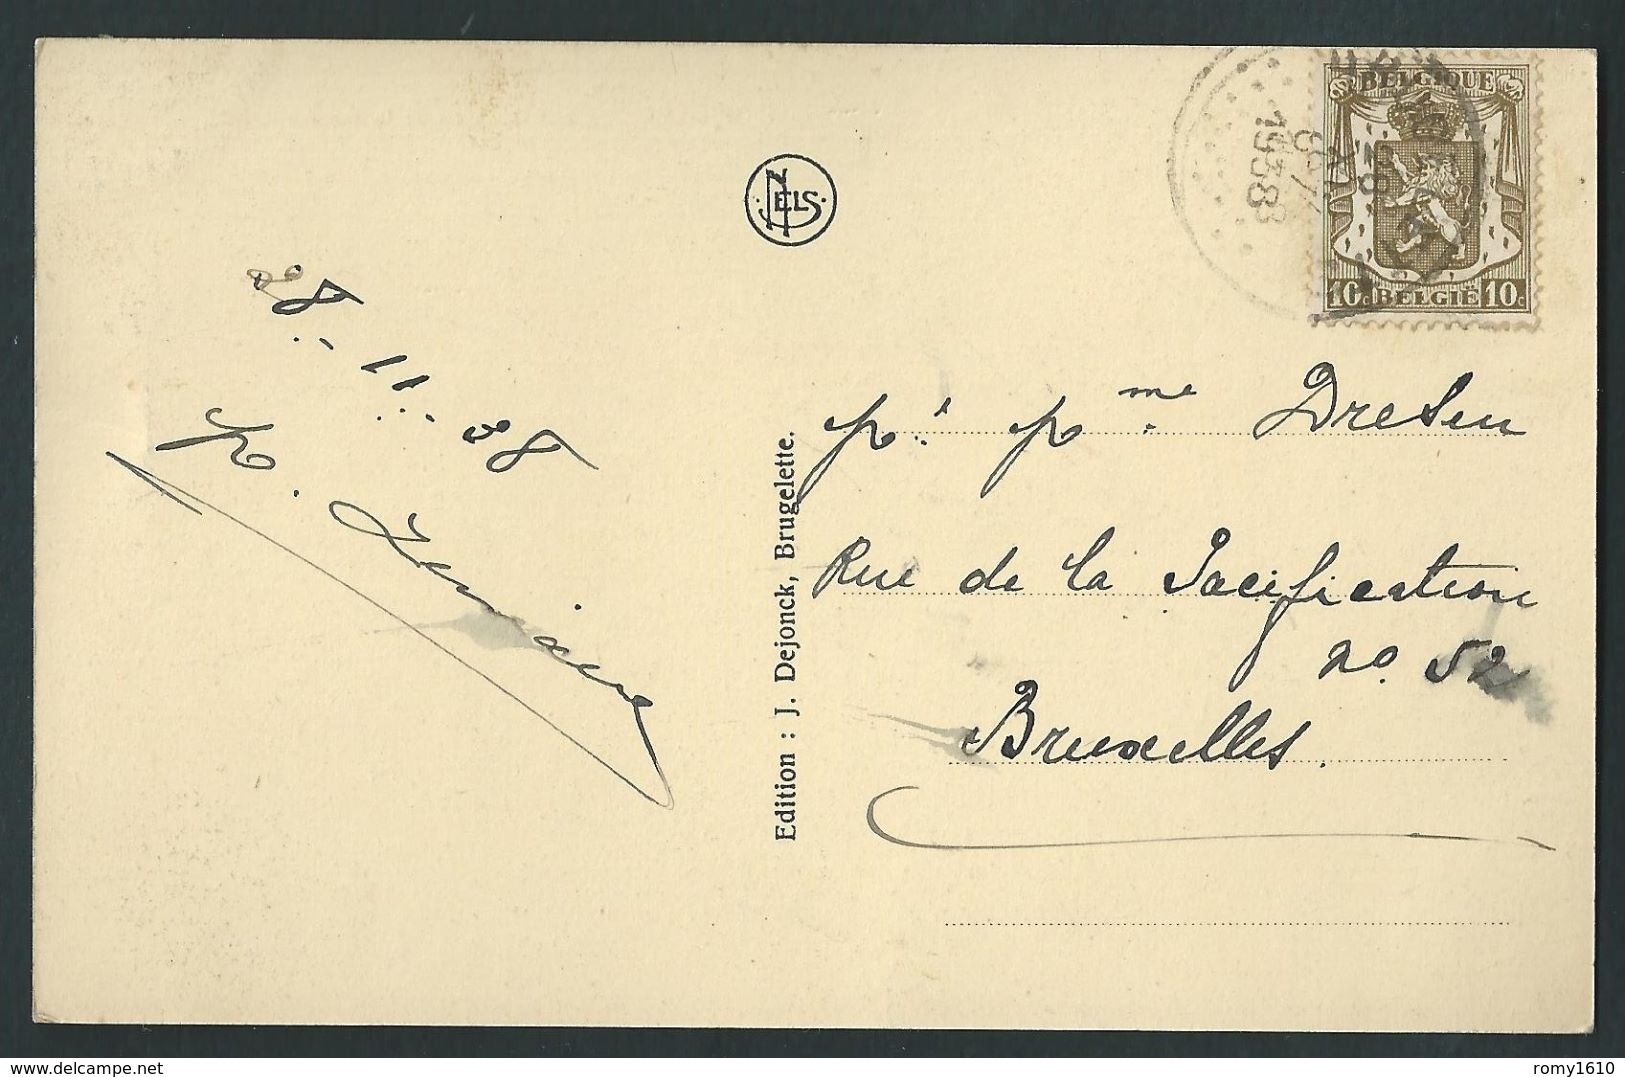 BELGIQUE
10c BELGIË 10c
1938
NELS
28-11-38
Edition : J. Dejonck, Brugelette.
me Dresen
Rue de la Pacification
no 52
Bruxelles.
delcampe.net
romy1610